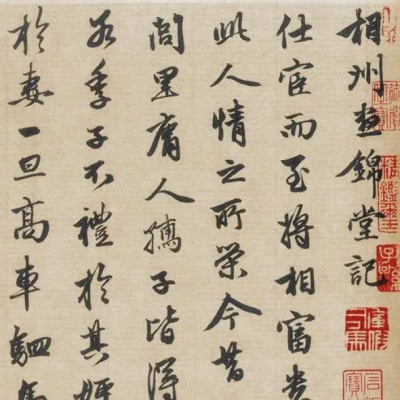 相州晝錦堂記
仕宦而至將相富貴
此人情之所榮今昔
閭里庸人孺子皆得
若季子不禮於其嫂
於妻一旦高車駟馬